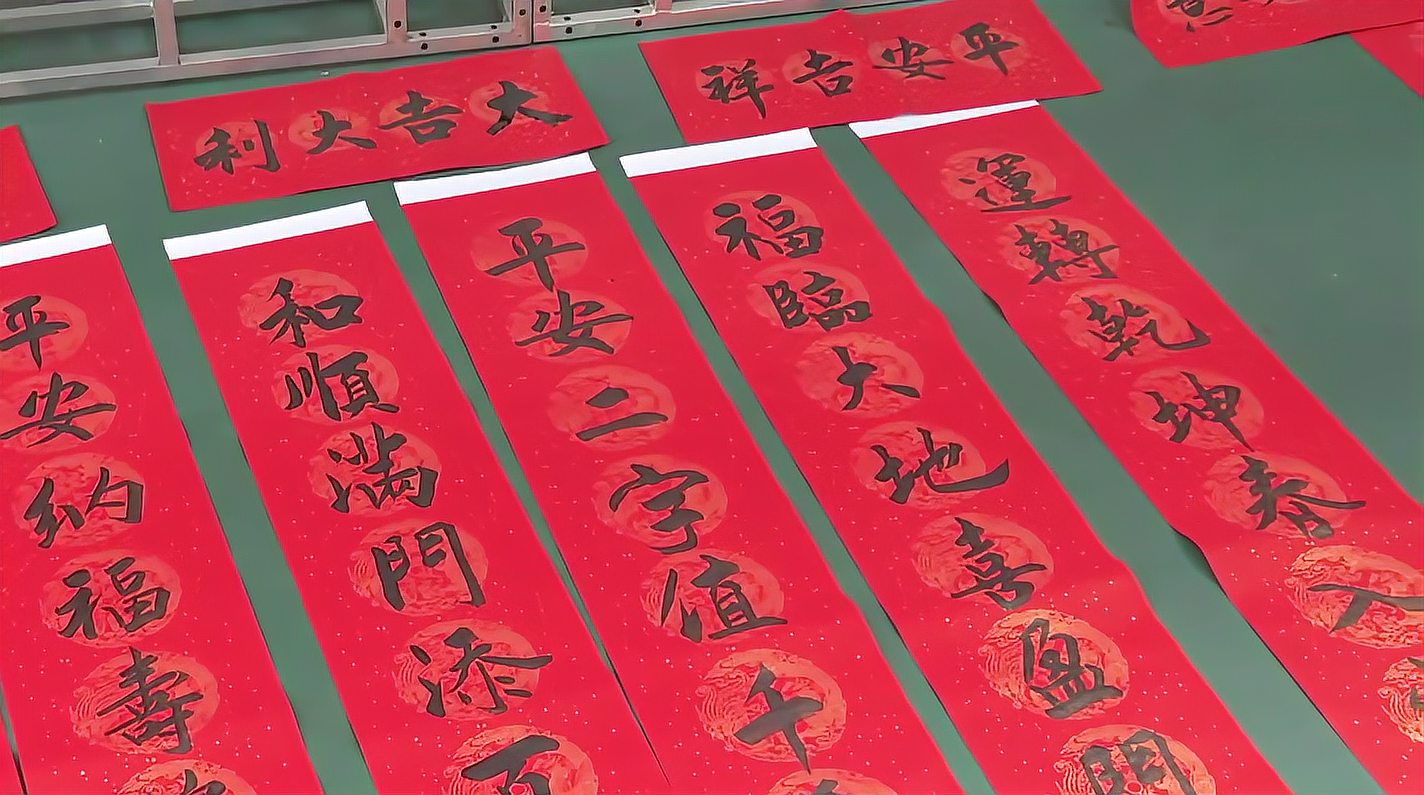 利大吉大
祥吉安平
平安納福壽
和順滿門添百
平安二字值千
福臨大地喜盈門
運轉乾坤春入